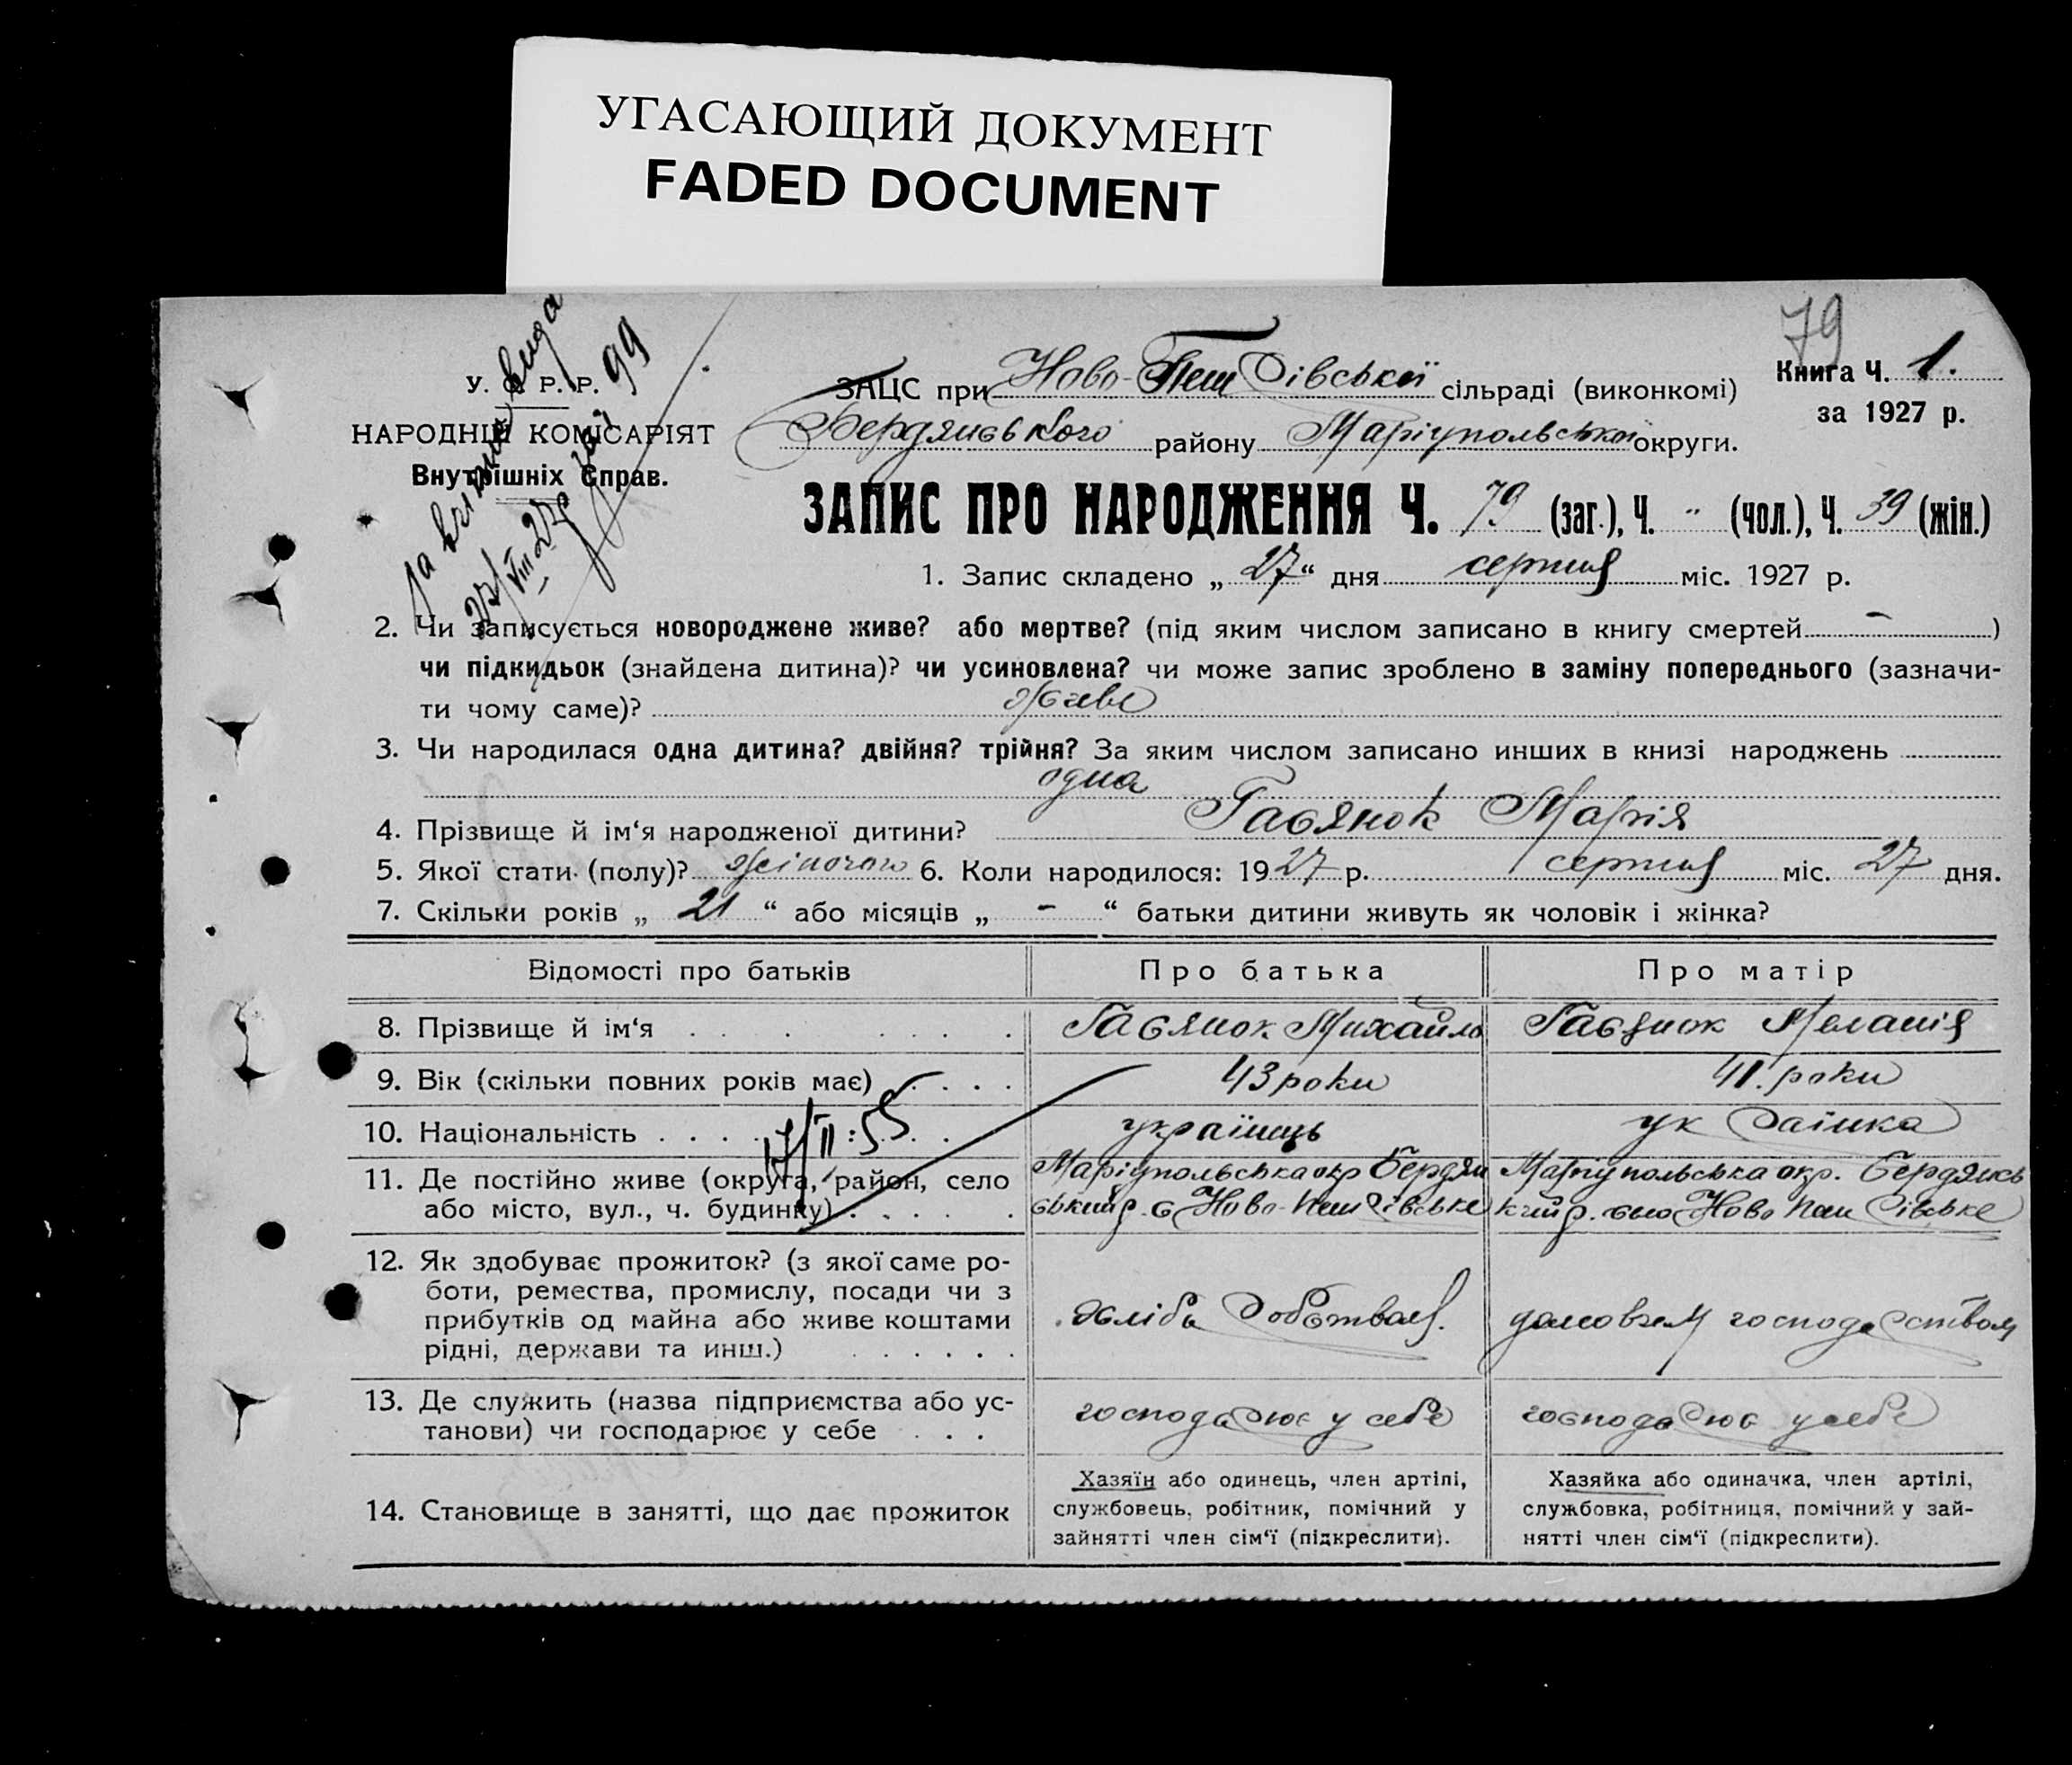 УГАСАЮЩИЙ ДОКУМЕНТ
FADED DOCUMENT
79
У. С. Р. Р.
НАРОДНІЙ КОМІСАРІЯТ
Внутрішніх Справ.
99
27/VIII 27р
ЗАЦС при Ново- сільраді (виконкомі)
Бердянського району Маріупольської округи.
Книга Ч. 1.
за 1927 р.
ЗАПИС ПРО НАРОДЖЕННЯ Ч. 79 (заг.), Ч. " (чол.), Ч. 39 (жін.)
1. Запис складено „ 27 “ дня серпня міс. 1927 р.
2. Чи записується новороджене живе? або мертве? (під яким числом записано в книгу смертей - )
чи підкидьок (знайдена дитина)? чи усиновлена? чи може запис зроблено в заміну попереднього (зазначи-
ти чому саме)? живе
3. Чи народилася одна дитина? двійня? трійня? За яким числом записано инших в книзі народжень
одна
4. Прізвище й ім‘я народженої дитини? Гасянок Марія
5. Якої стати (полу)? жіночого 6. Коли народилося: 1927 р. серпня міс. 27 дня.
7. Скільки років „ 21 “ або місяців „ - “ батьки дитини живуть як чоловік і жінка?
Відомості про батьків Про батька Про матір
8. Прізвище й ім‘я Гасянок Михайло Гасянок Меланія
9. Вік (скільки повних років має) 43 роки 41. роки
10. Національність українець українка
17/II:55
11. Де постійно живе (округа, район, село Маріупольська окр Бердян Маріупольська окр. Бердянсь
або місто, вул., ч. будинку) ський р. с Ново- кий р. село Ново
12. Як здобуває прожиток? (з якої саме ро-
боти, ремества, промислу, посади чи з
прибутків од майна або живе коштами хліборобством домовим господарством
рідні, держави та инш.)
13. Де служить (назва підприємства або ус- господарює у себе господарює у себе
танови) чи господарює у себе
14. Становище в занятті, що дає прожиток
Хазяїн або одинець, член артілі,
службовець, робітник, помічний у
зайнятті член сім‘ї (підкреслити).
Хазяйка або одиначка, член артілі,
службовка, робітниця, помічний у зай-
нятті член сім‘ї (підкреслити).